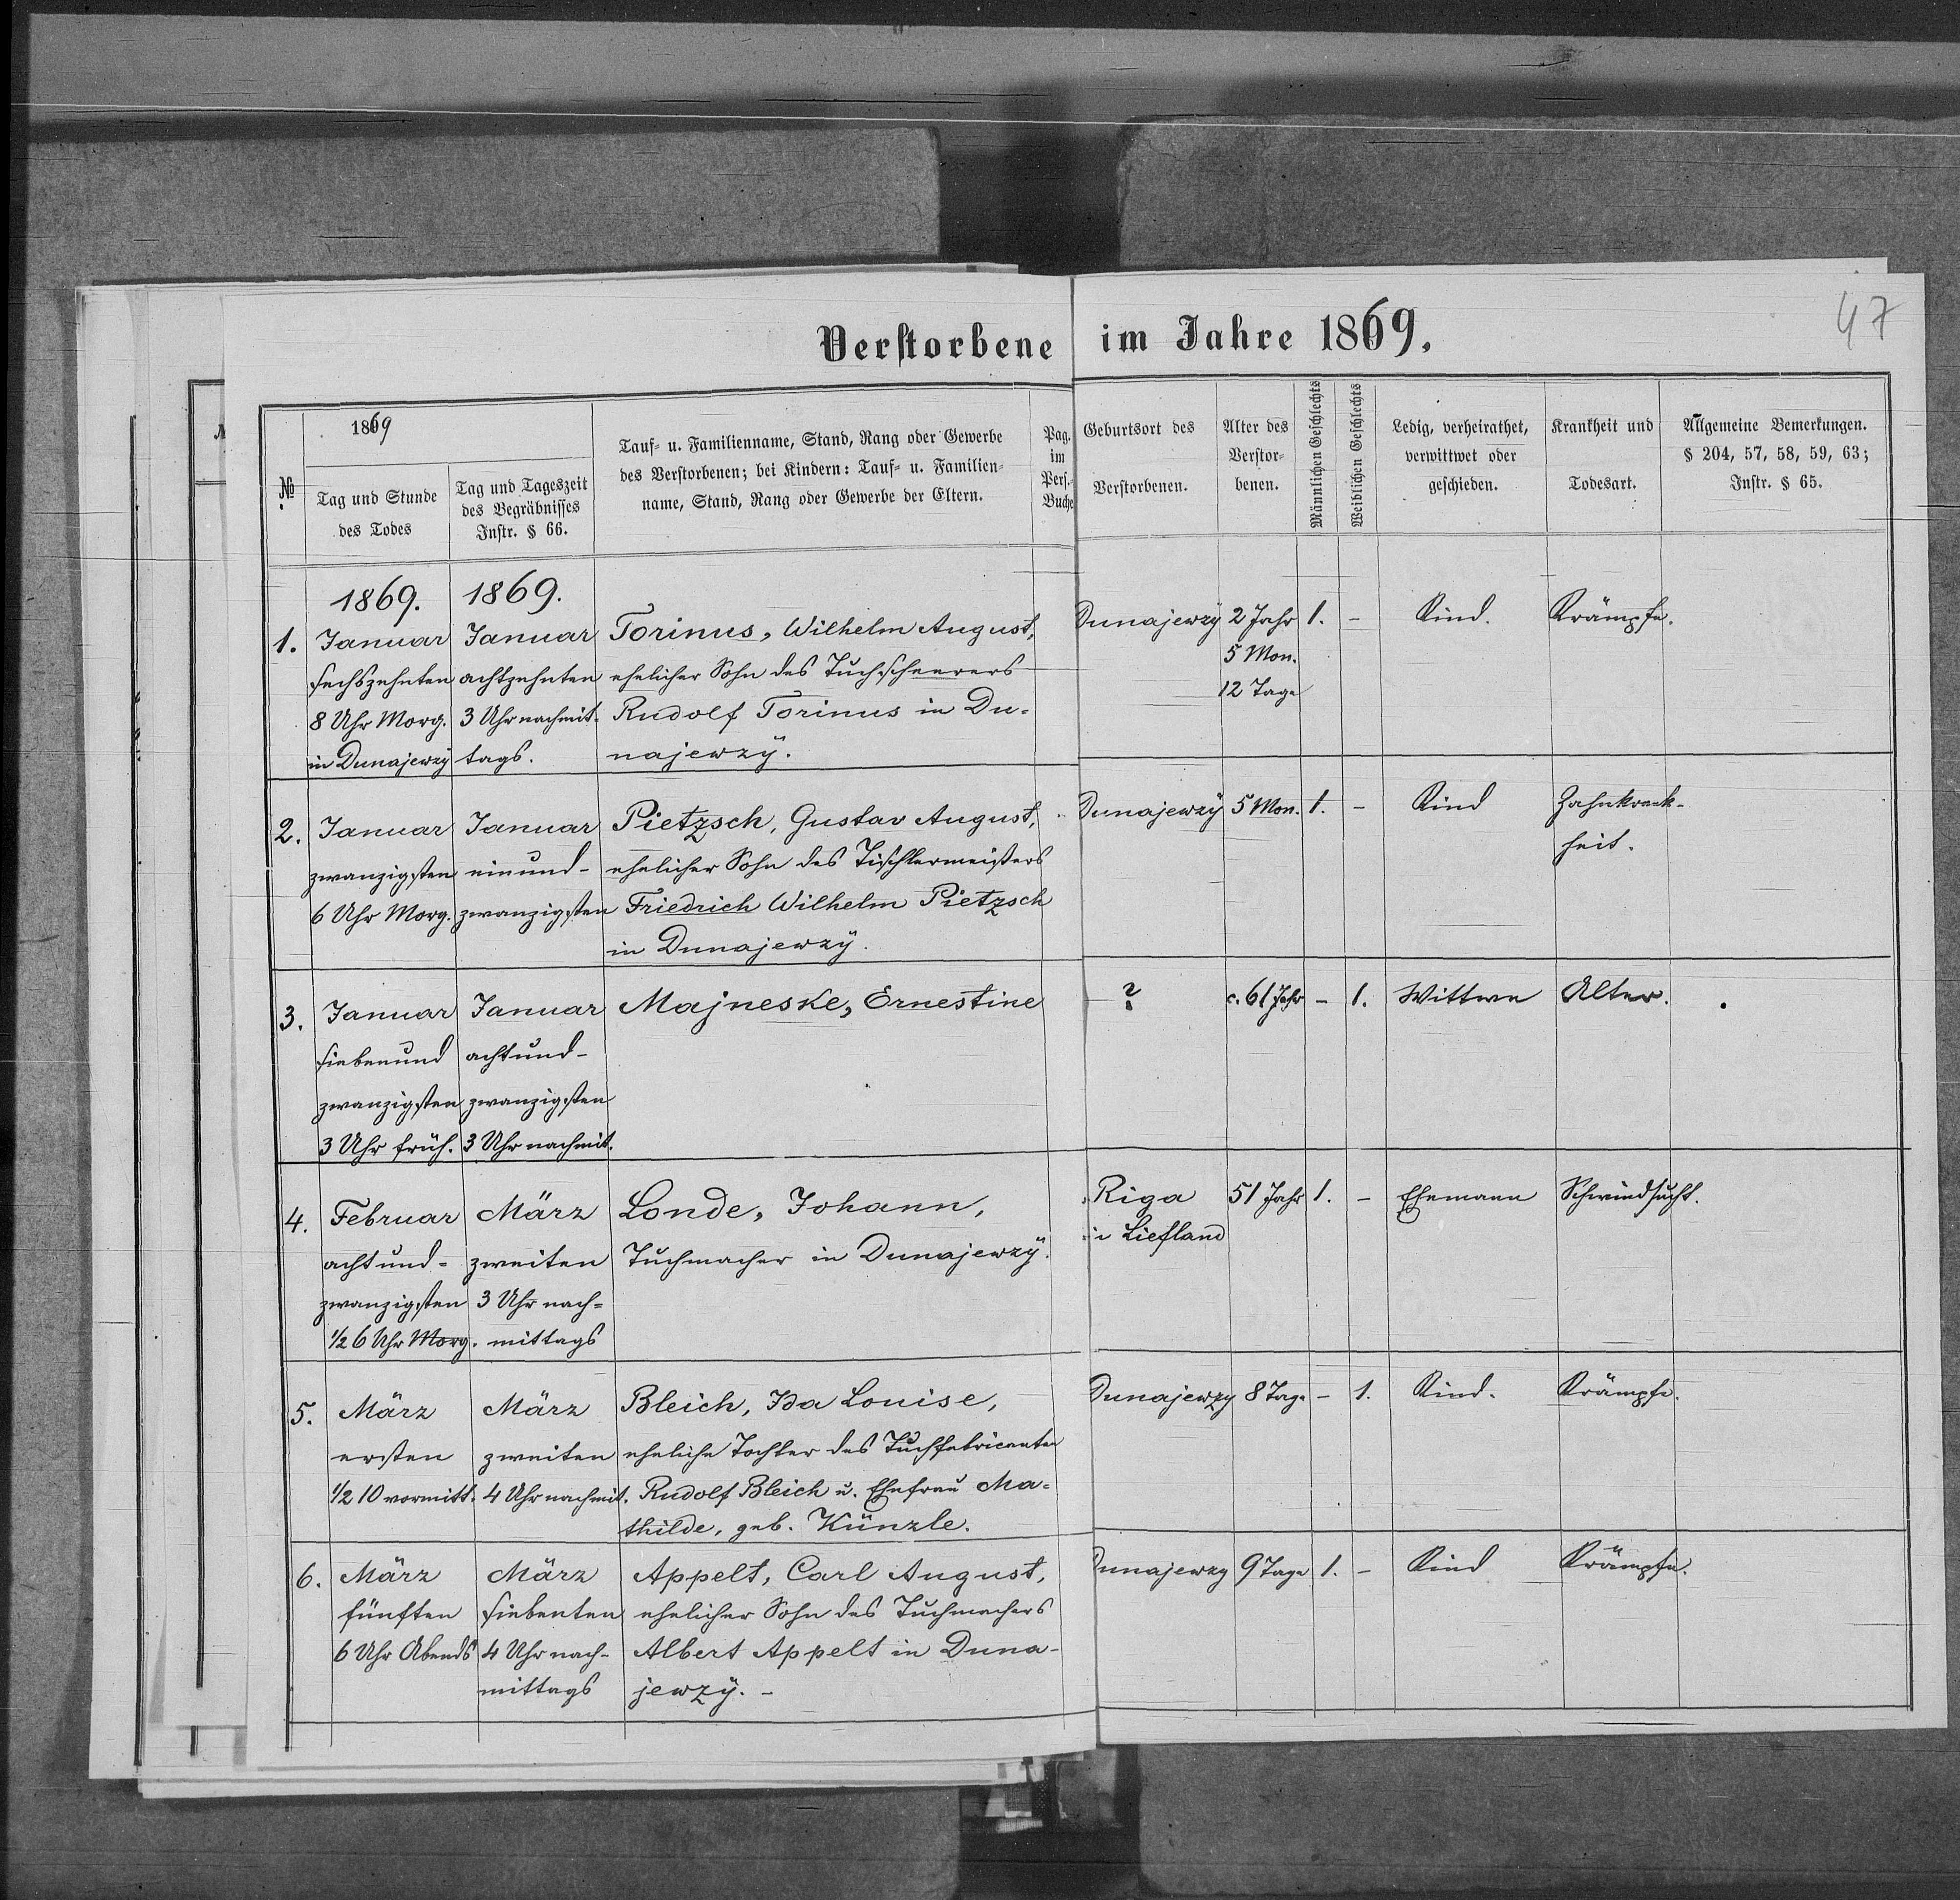 47
Verstorbene im Jahre 1869.
№
1869
Tag und Stunde
des Todes
Tag und Tageszeit
des Begräbnisses
Instr. § 66.
Tauf- u. Familienname, Stand, Rang oder Gewerbe
des Verstorbenen; bei Kindern: Tauf- u. Familien-
name, Stand, Rang oder Gewerbe der Eltern.
Pag.
im
Pers.-
Buche
Geburtsort des
Verstorbenen.
Alter des
Verstor-
benen.
Männlichen Geschlechts
Weiblichen Geschlechts
Ledig, verheirathet,
verwittwet oder
geschieden.
Krankheit und
Todesart.
Allgemeine Bemerkungen.
§ 204, 57, 58, 59, 63;
Instr. § 65.
1869. 1869.
1. Januar Januar Torinus, Wilhelm August, Dunajewzÿ 2 Jahr 1. – Kind. Krämpfe.
sechszehnten achtzehnten ehelicher Sohn des Tuchscheerers 5 Mon.
8 Uhr Morg. 3 Uhr nachmit- Rudolf Torinus in Du- 12 Tage
in Dunajewzÿ tags. najewzÿ.
2. Januar Januar Pietzsch, Gustav August, Dunajewzÿ 5 Mon. 1. – Kind Zahnkrank-
zwanzigsten einund- ehelicher Sohn des Tischlermeisters heit.
6 Uhr Morg. zwanzigsten Friedrich Wilhelm Pietzsch
in Dunajewzÿ.
3. Januar Januar Majneske, Ernestine ? c. 61 Jahr – 1. Wittwe Alter.
siebenund achtund-
zwanzigsten zwanzigsten
3 Uhr früh. 3 Uhr nachmit.
4. Februar März Londe, Johann, Riga 51 Jahr 1. – Ehemann Schwindsucht.
achtund- zweiten Tuchmacher in Dunajewzÿ. in Liefland
zwanzigsten 3 Uhr nach-
1/2 6 Uhr Morg. mittags
5. März März Bleich, Ida Louise, Dunajewzy 8 Tage – 1. Kind. Krämpfe.
ersten zweiten eheliche Tochter des Tuchfabricanten
1/2 10 vormitt. 4 Uhr nachmit. Rudolf Bleich u. Ehefrau Ma-
thilde, geb. Künzle.
6. März März Appelt, Carl August, Dunajewzy 9 Tage 1. – Kind Krämpfe.
fünften siebenten ehelicher Sohn des Tuchmachers
6 Uhr Abends 4 Uhr nach- Albert Appelt in Duna-
mittags jewzÿ. –